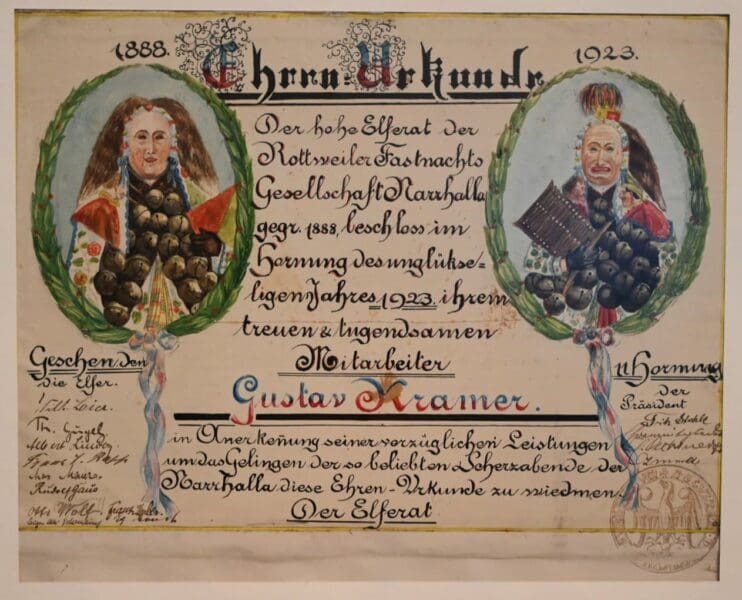 1888.
Ehren-Urkunde
1923.
Der hohe Elferat der
Rottweiler Fastnachts
Gesellschaft Narrhalla
gegr. 1888, beschloss im
Hornung des unglükse-
ligen Jahres 1923. ihrem
treuen & tugendsamen
Mitarbeiter
Gustav Kramer.
in Anerkeñung seiner vorzüglichen Leistungen
um das Gelingen der so beliebten Scherzabende der
Narrhalla diese Ehren-Urkunde zu widmen.
Der Elferat
Geschen den
die Elfer.
Th. Gugel
Albert
Franz J.
Rudolf Gaus
Otto Wolf.
11 Hornung
der
Präsident